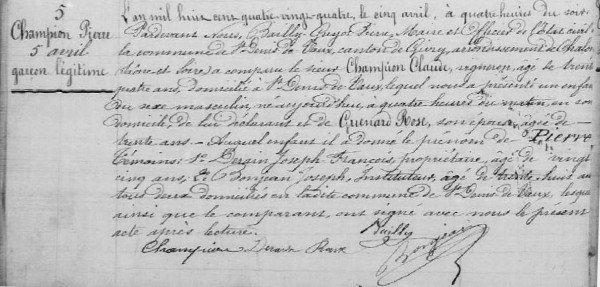 5
Champion Pierre
5 avril
garçon légitime
L'an mil huit cent quatre-vingt-quatre, le cinq avril, à quatre heures du soir
Pardevant Nous, Bailly-Guyot Pierre, Maire et Officier de l'Etat civil de
la commune de St Denis de Vaux, canton de Givry, arrondissement de Chalon
(Saône et Loire) a comparu le sieur Champion Claude, vigneron, âgé de trente
quatre ans, domicilié à St Denis de Vaux, lequel nous a présenté un enfant
du sexe masculin, né aujourd'hui, à quatre heures du matin, en son
domicile, de lui déclarant et de Guenard Rose, son épouse, âgée de
trente ans - Auquel enfant il a donné le prénom de Pierre
Témoins: 1° Joseph François, propriétaire, âgé de vingt
cinq ans, 2° Bonjean Joseph, Instituteur, âgé de trente
tous deux domiciliés en ladite commune de St Denis de Vaux, lesquels
ainsi que le comparant, ont signé avec nous le présent
acte après lecture.
Bailly
Champion Bonjean